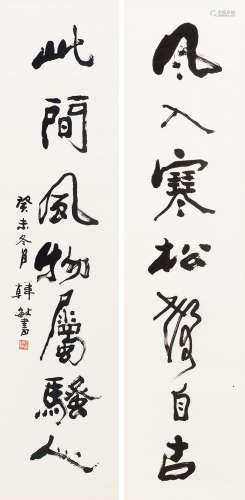 風入寒松聲自古
此間風物屬騷人
癸未冬月 韓敏書